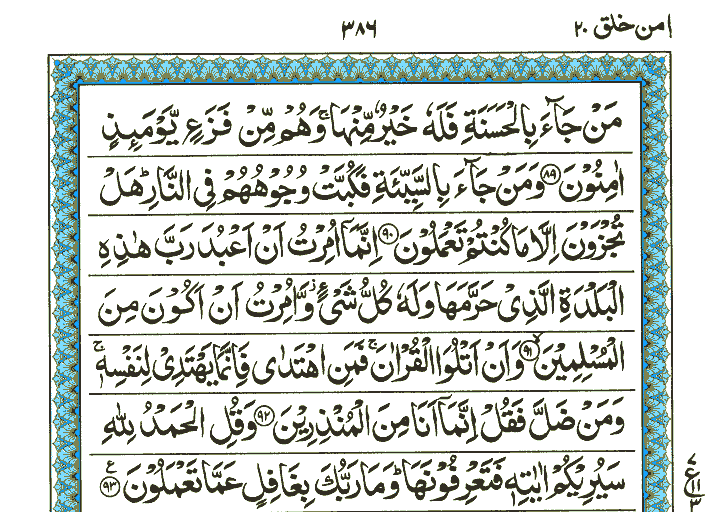 امن خلق ٢٠ ٣٨٦
مَنْ جَآءَ بِالْحَسَنَةِ فَلَهٗ خَيْرٌ مِّنْهَا ۚ وَهُمْ مِّنْ فَزَعٍ يَّوْمَىِٕذٍ
اٰمِنُوْنَ ۝٨٩ وَمَنْ جَآءَ بِالسَّيِّئَةِ فَكُبَّتْ وُجُوْهُهُمْ فِى النَّارِ ؕ هَلْ
تُجْزَوْنَ اِلَّا مَا كُنْتُمْ تَعْمَلُوْنَ ۝٩٠ اِنَّمَاۤ اُمِرْتُ اَنْ اَعْبُدَ رَبَّ هٰذِهِ
الْبَلْدَةِ الَّذِىْ حَرَّمَهَا وَلَهٗ كُلُّ شَىْءٍ ؗ وَّاُمِرْتُ اَنْ اَكُوْنَ مِنَ
الْمُسْلِمِيْنَ ۙ۝٩١ وَاَنْ اَتْلُوَا الْقُرْاٰنَ ۚ فَمَنِ اهْتَدٰى فَاِنَّمَا يَهْتَدِىْ لِنَفْسِهٖ ۚ
وَمَنْ ضَلَّ فَقُلْ اِنَّمَاۤ اَنَا مِنَ الْمُنْذِرِيْنَ ۝٩٢ وَقُلِ الْحَمْدُ لِلّٰهِ
سَيُرِيْكُمْ اٰيٰتِهٖ فَتَعْرِفُوْنَهَا ؕ وَمَا رَبُّكَ بِغَافِلٍ عَمَّا تَعْمَلُوْنَ ۝٩٣ ع
٧
ع
١١
٣